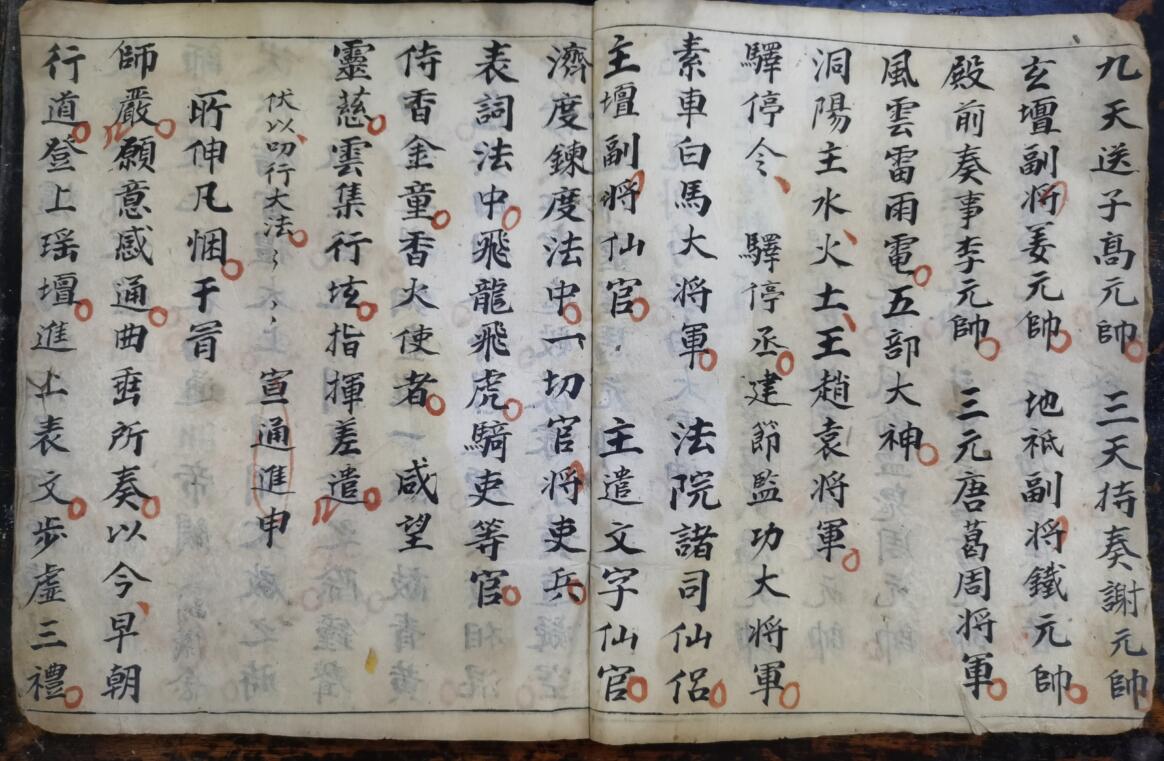 九天送子高元帥 三天持奏謝元帥
玄壇副將姜元帥 地祗副將鐵元帥
殿前奏事李元帥 三元唐葛周將軍
風雲雷雨電五部大神
洞陽主水火土王趙袁將軍
驛停令 驛停丞建節監功大將軍
素車白馬大將軍 法院諸司仙侶
主壇副將仙官 主遣文字仙官
濟度鍊度法中一切官將吏兵
表詞法中飛龍飛虎騎吏等官
侍香金童香火使者一咸望
靈慈雲集行壇指揮差遣
伏以切行大法 宣通進申
所伸凡悃干冒
師嚴願意感通曲垂所奏以今早朝
行道登上瑤壇進上表文步虛三禮